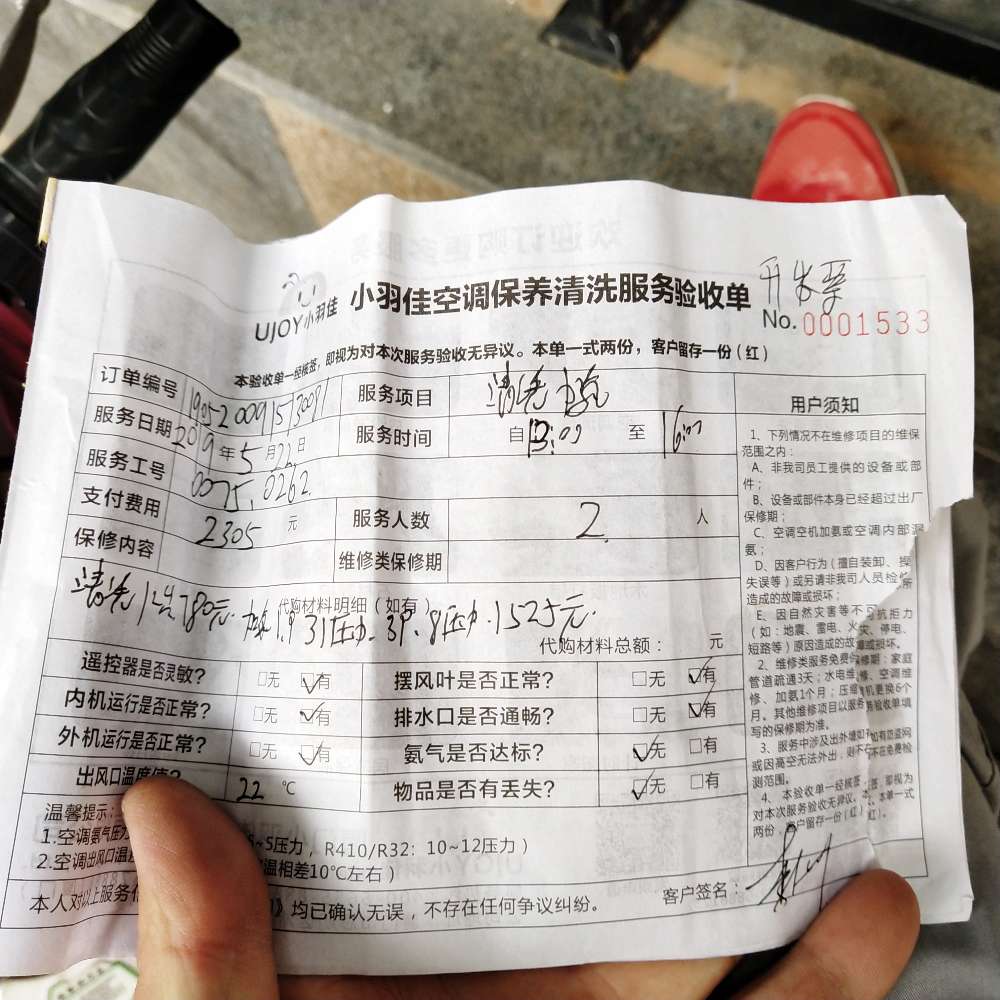 欢迎订购更多服务
UJOY小羽佳 小羽佳空调保养清洗服务验收单 开发票
No.0001533
本验收单一经核签，即视为对本次服务验收无异议。本单一式两份，客户留存一份（红）
订单编号 服务项目 清洗
服务日期 2019年5月22日 服务时间 自13:00 至 16:00
服务工号 0075.0262
支付费用 2305元 服务人数 2.人
保修内容 维修类保修期
代购材料明细（如有）
清洗 780元. 31压力 8压力.1525元.
代购材料总额： 元
遥控器是否灵敏？ □无 ☑有 摆风叶是否正常？ □无 ☑有
内机运行是否正常？ □无 ☑有 排水口是否通畅？ □无 ☑有
外机运行是否正常？ □无 ☑有 氨气是否达标？ ☑无 □有
出风口温度值？ 22 ℃ 物品是否有丢失？ ☑无 □有
温馨提示：
1.空调氨气压力 5~5压力，R410/R32：10~12压力）
2.空调出风口温度 温相差10℃左右）
本人对以上服务 》均已确认无误，不存在任何争议纠纷。
客户签名：
用户须知
1、下列情况不在维修项目的维保
范围之内：
A、非我司员工提供的设备或部
件；
B、设备或部件本身已经超过出厂
保修期；
C、空调空机加氨或空调内部漏
氨；
D、因客户行为（擅自装卸、操
失误等）或另请非我司人员检修所
造成的故障或损坏；
E、因自然灾害等不可抗拒力
（如：地震、雷电、火灾、停电、
短路等）原因造成的故障或损坏。
2、维修类服务免费保修期：家庭
管道疏通3天；水电维修、空调维
修、加氨1个月；压缩机更换6个
月。其他维修项目以服务验收单填
写的保修期为准。
3、服务中涉及出外墙如有防盗网
或因高空无法外出，则不在免费检
测范围。
4、本验收单一经核签，即视为
对本次服务验收无异议，本单一式
两份，客户留存一份（红）。